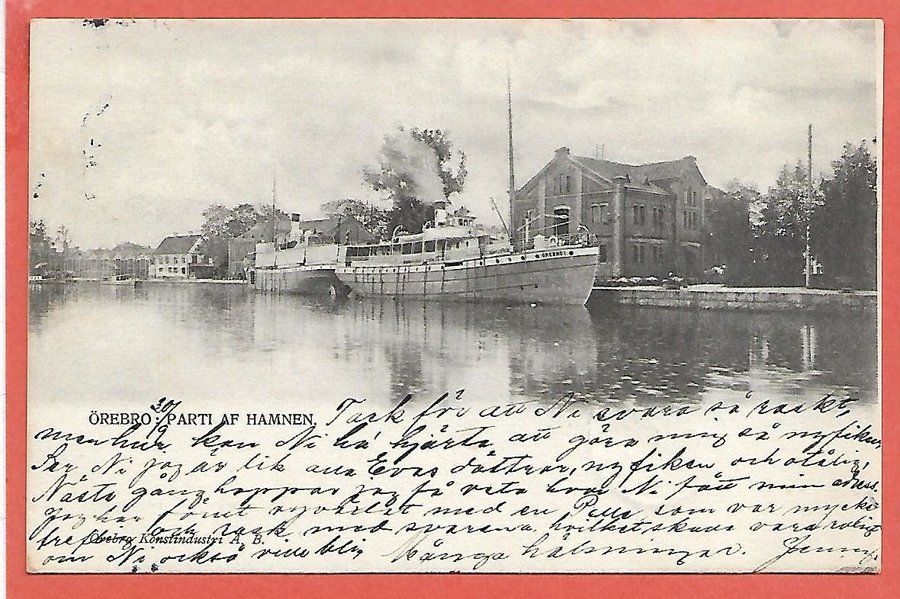 ÖREBRO
ÖREBRO. PARTI AF HAMNEN.
30/9
Tack för att Ni svara så raskt,
men hur kan Ni ha hjärta att göra mig så nyfiken
Ser Ni jag är lik alla Evas döttrar, nyfiken och otålig
Nästa gång hoppas jag få veta hvar Ni fått min adress.
Jag har förut vyväxlat med en Pelle som var mycket
och rask med svarena, hvilket skulle vara roligt
Örebro Konstindustri A. B.
om Ni också ville bli Många hälsningar. Jenny.